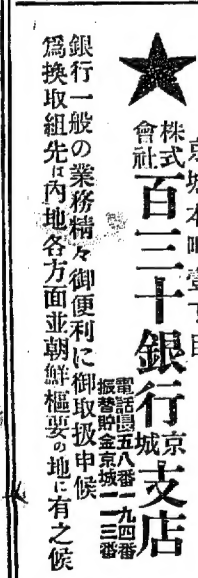 京城本町壹丁目
株式會社 百三十銀行京城支店
電話長五八番 一九四番
振替貯金京城 一一三番
銀行一般の業務精々御便利に御取扱申候
爲換取組先は內地各方面並朝鮮樞要の地に有之候